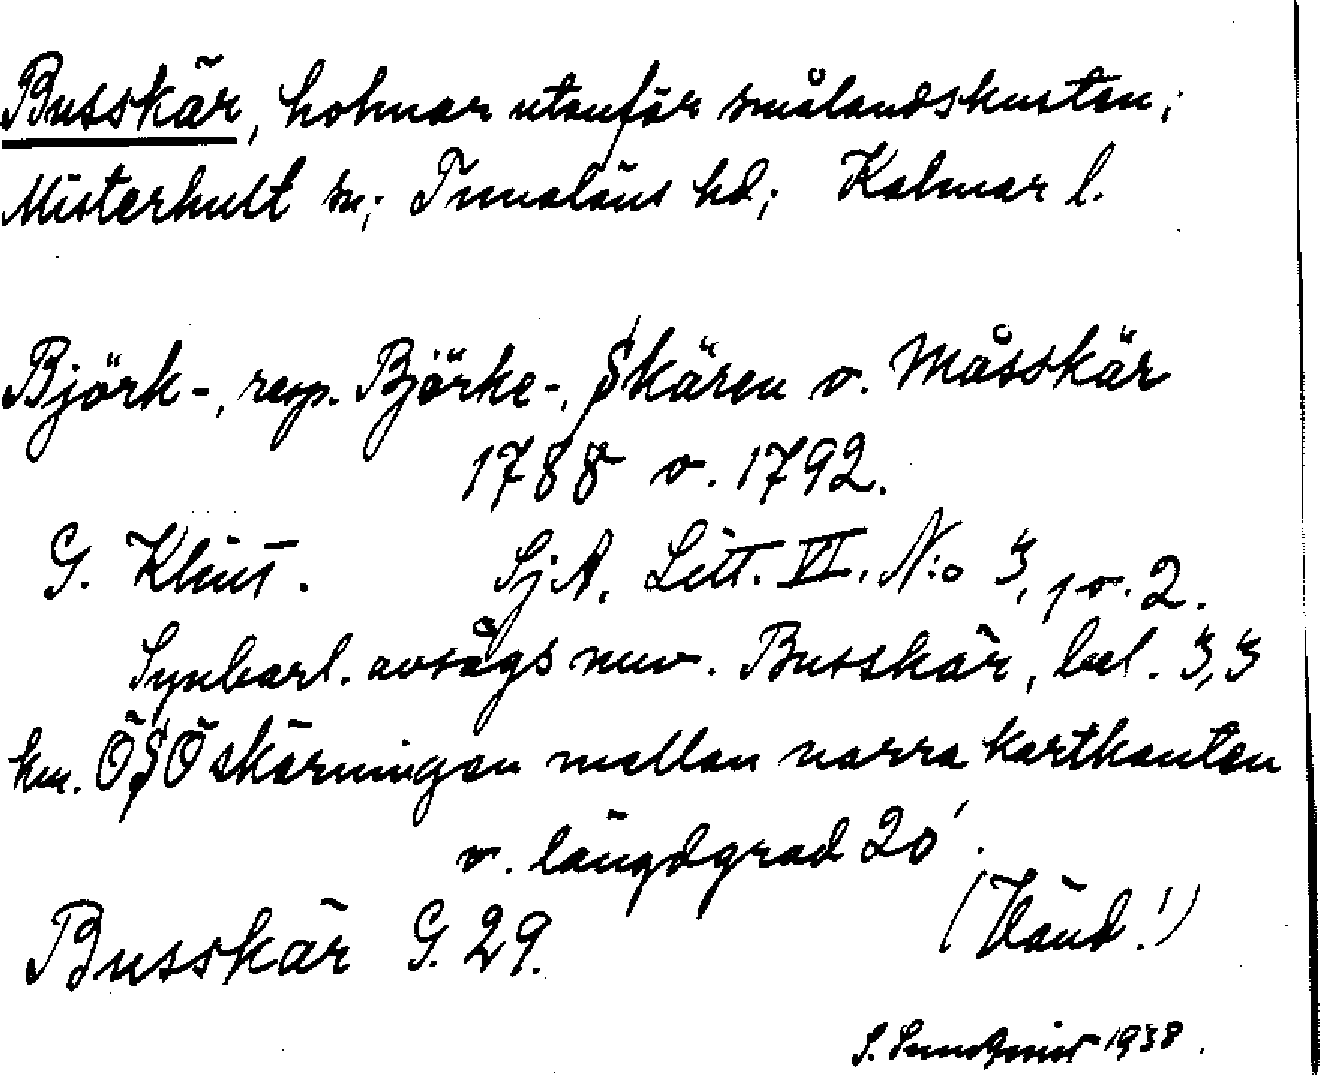 Busskär, holmar utanför smålandskusten;
Misterhult sn; Tunaläns hd; Kalmar l.
Björk-, resp. Björke-, Skären o. Måsskär
1788 o. 1792.
G. Klint. SjA. Litt. VI. N:o 3, 1 o. 2.
Synbarl. avsågs nuv. Busskär, bel. 3,3
km. ÖSÖ skärningen mellan norra kartkanten
o. längdgrad 20'.
(Vänd!)
Busskär G. 29.
S. 1938.